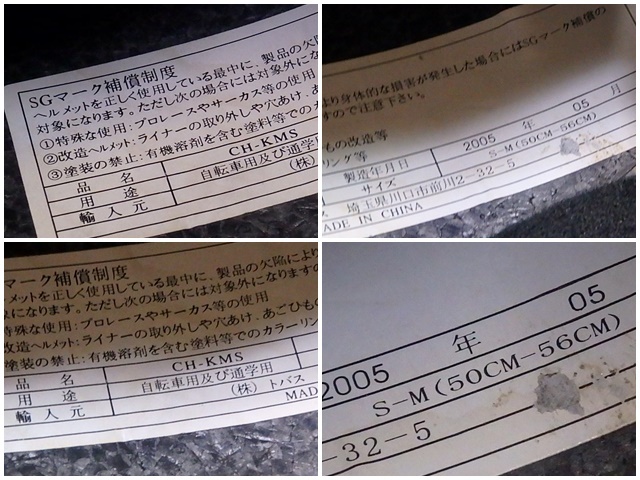 SGマーク補償制度
ヘルメットを正しく使用している最中に、製品の欠陥
対象になります。ただし次の場合には対象外に
①特殊な使用:プロレースやサーカス等の使用
②改造ヘルメット:ライナーの取り外しや穴あけ、あ
③塗装の禁止:有機溶剤を含む塗料等での
品 名 CH-KMS
用 途 自転車用及び通学
輸 入 元 (株)
より身体的な損害が発生した場合にはSGマーク補償の
すので注意下さい。
もの改造等
リング等
製造年月日 2005 年 05 月
サイズ S-M(50CM-56CM)
埼玉県川口市前川2-32-5
ADE IN CHINA
マーク補償制度
メットを正しく使用している最中に、製品の欠陥により
象になります。ただし次の場合には対象外になりますの
特殊な使用:プロレースやサーカス等の使用
改造ヘルメット:ライナーの取り外しや穴あけ、あごひもの
塗装の禁止:有機溶剤を含む塗料等でのカラーリン
品 名 CH-KMS
用 途 自転車用及び通学用
輸 入 元 (株) トバス
MAD
2005 年 05
S-M(50CM-56CM)
-32-5